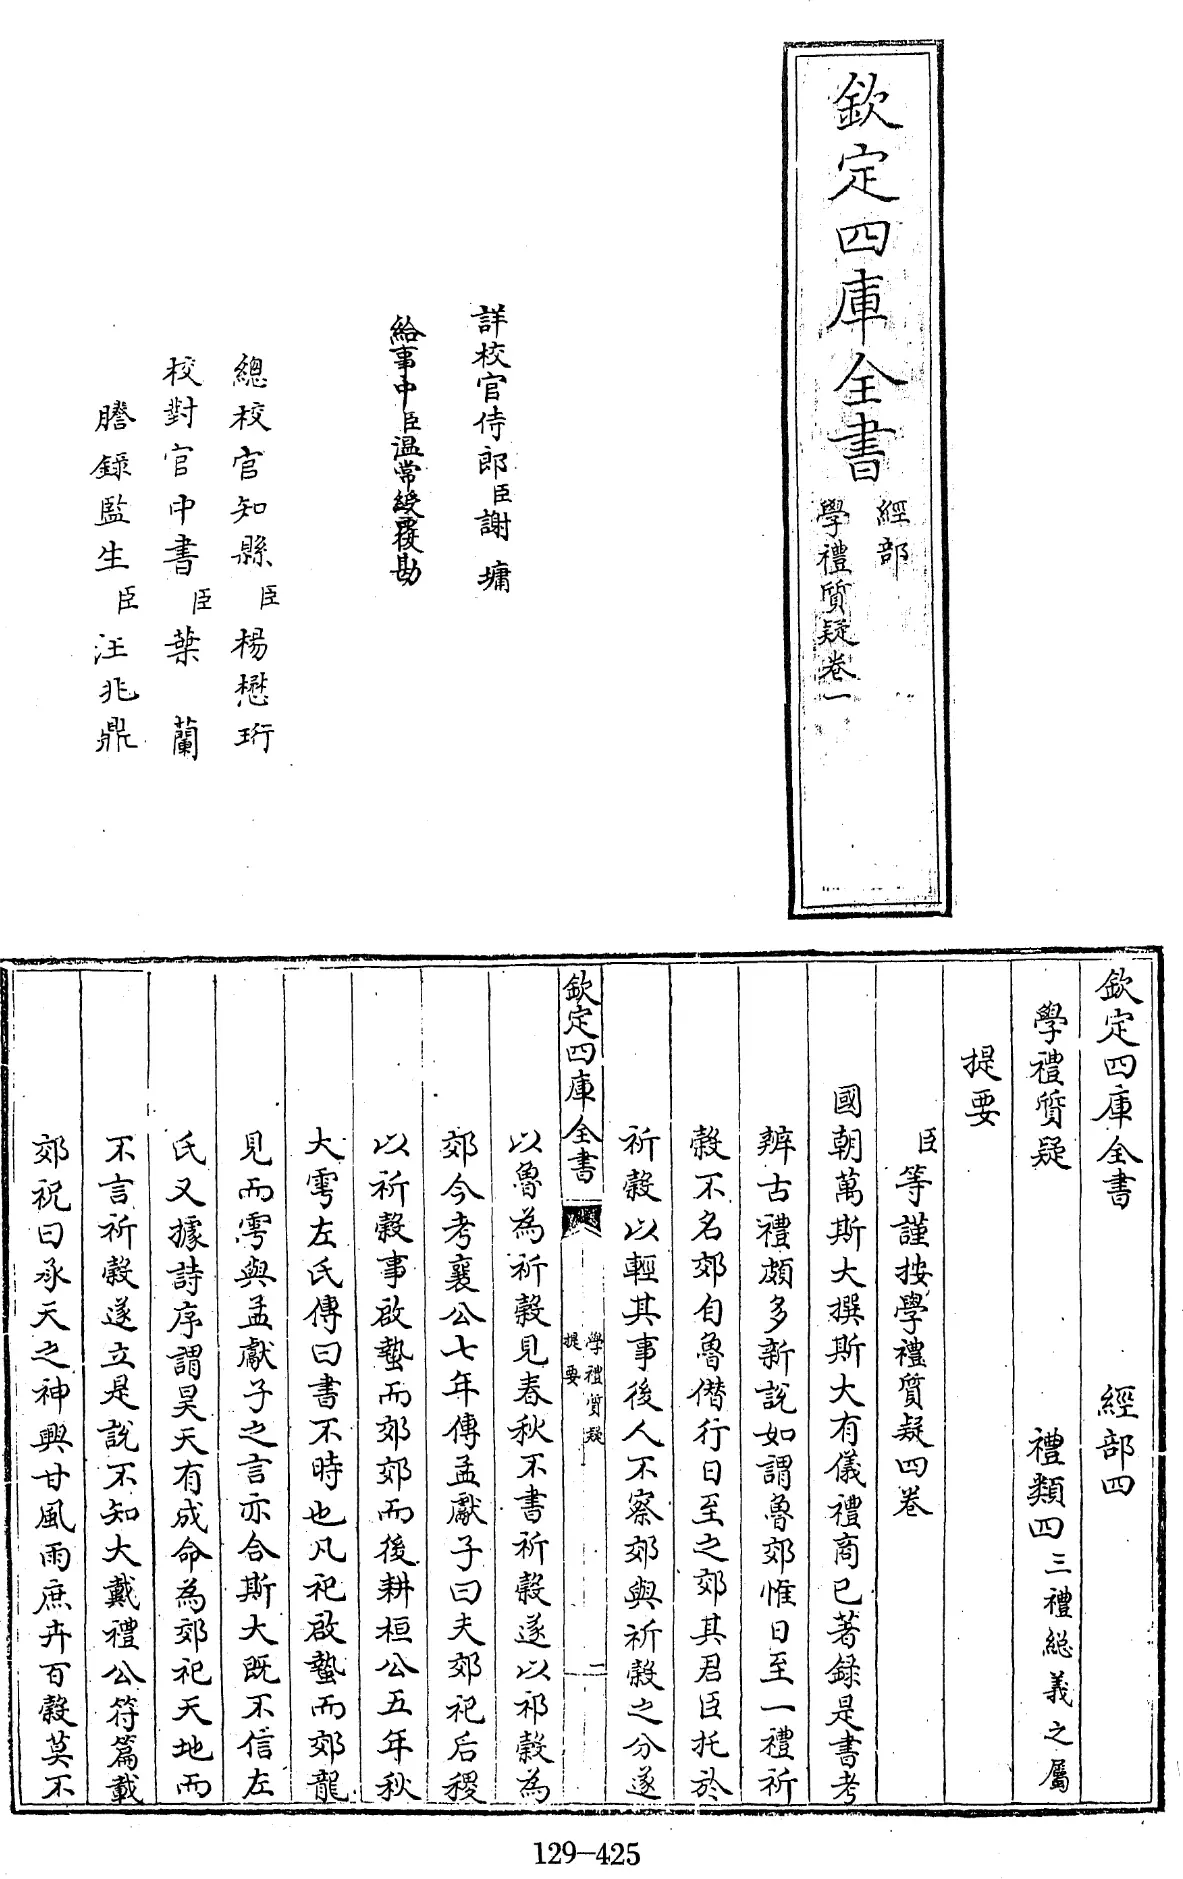 欽定四庫全書
經部
學禮質疑卷一
詳校官侍郎臣謝墉
給事中臣溫常綬覆勘
總校官知縣臣楊懋珩
校對官中書臣葉蘭
謄錄監生臣汪兆鼎
欽定四庫全書 經部四
學禮質疑 禮類四三禮總義之屬
提要
臣等謹按學禮質疑四卷
國朝萬斯大撰斯大有儀禮商已著録是書考
辨古禮頗多新說如謂魯郊惟日至一禮祈
穀不名郊自魯僭行日至之郊其君臣托於
祈穀以輕其事後人不察郊與祈穀之分遂
欽定四庫全書
學禮質疑
提要
二
以魯為祈穀見春秋不書祈穀遂以祁穀為
郊今考襄公七年傳孟獻子曰夫郊祀后稷
以祈穀事啟蟄而郊郊而後耕桓公五年秋
大雩左氏傳曰書不時也凡祀啟蟄而郊龍
見而雩與孟獻子之言亦合斯大既不信左
氏又據詩序謂昊天有成命為郊祀天地而
不言祈穀遂立是說不知大戴禮公符篇載
郊祝曰承天之神興甘風雨庶卉百穀莫不
129-425